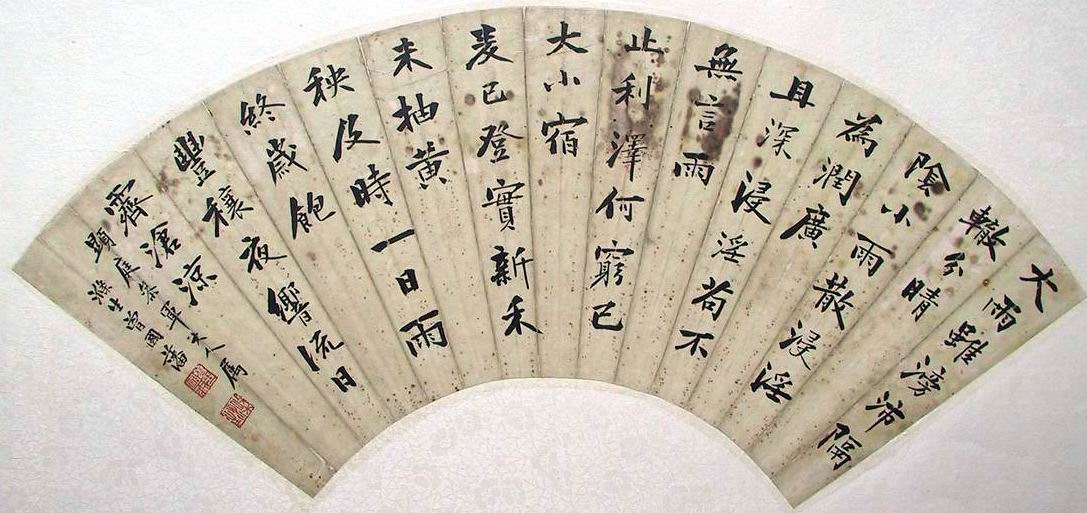 大雨雖滂沛隔
轍分晴
陰小雨散浸淫
為潤廣
且深浸淫苟不
無言雨
止利澤何窮已
大小宿
麥已登實新禾
未抽黃
秧及時一日雨
終歲飽
豐穰夜響流日
霽滄涼
顯庭叅軍大人屬
滌生曾國藩